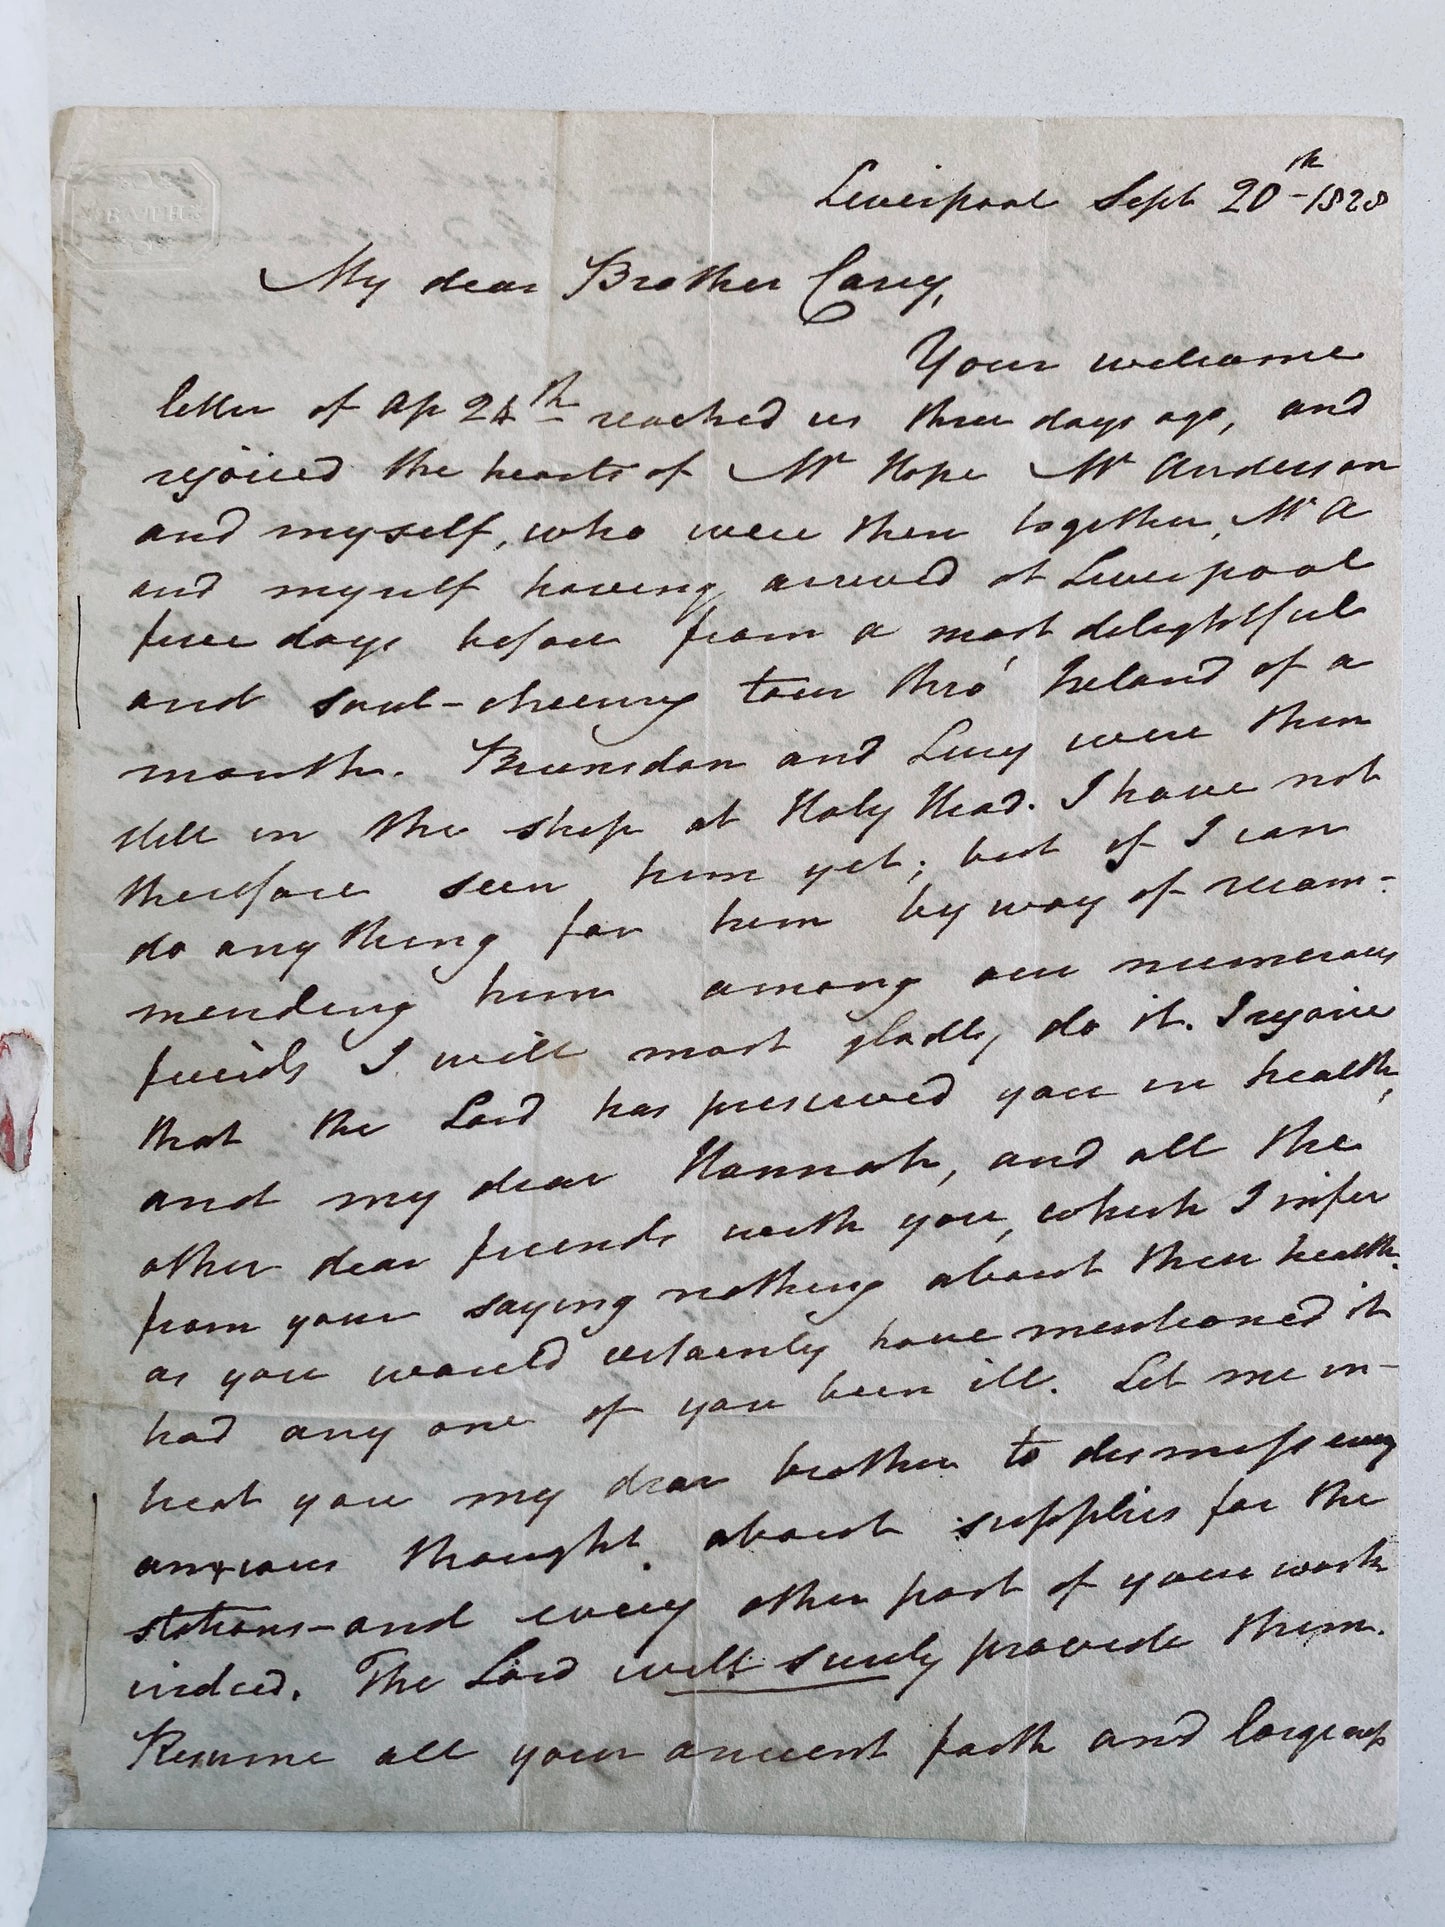 BATH
Liverpool Sept 20th - 1828
My dear Brother Carey,
Your welcome
letter of Ap 24th reached us three days ago, and
rejoiced the hearts of Mr Hope Mr Anderson
and myself, who were then together, Mr A
and myself having arrived at Liverpool
few days before from a most delightful
and soul-cheering tour thro' Ireland of a
month. Brunsdon and Lucy were then
still in the ship at Holy Head. I have not
therefore seen him yet; but if I can
do any thing for him by way of recom-
mending him among our numerous
friends I will most gladly do it. I rejoice
that the Lord has preserved you in health,
and my dear Hannah, and all the
other dear friends with you, which I infer
from your saying nothing about their health,
as you would certainly have mentioned it
had any one of you been ill. Let me in-
treat you my dear brother to dismiss every
anxious thought about supplies for the
stations - and every other part of your work
indeed. The Lord will surely provide them.
Resume all your ancient faith and largeness